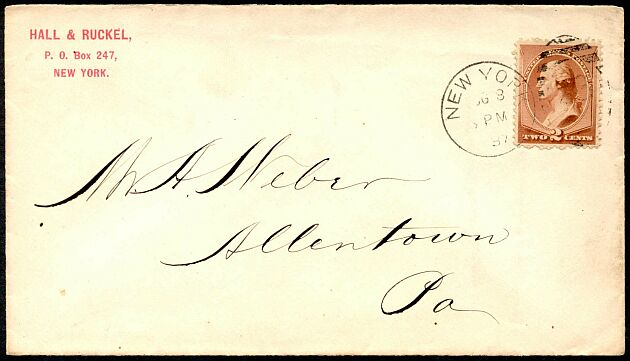 HALL & RUCKEL,
P. O. Box 247,
NEW YORK.
NEW YOR
G 8
PM
87
TWO 2 CENTS
Mr A. Weber
Allentown
Pa